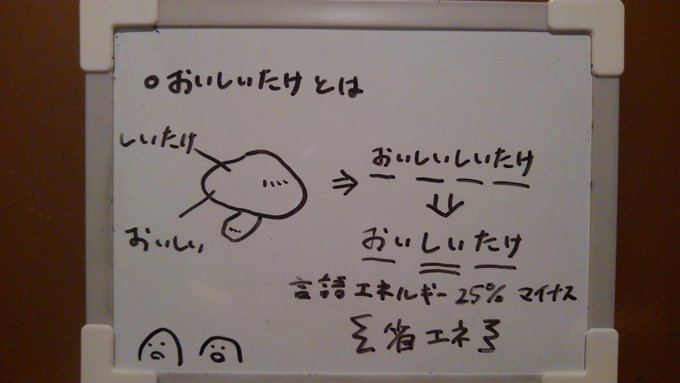 ○おいしいたけとは
しいたけ
おいしい
⇒ おいしいしいたけ
⇓
おいしいたけ
言語エネルギー25%マイナス
{省エネ}